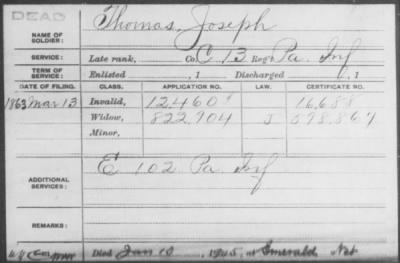 DEAD
NAME OF SOLDIER: Thomas, Joseph
SERVICE: Late rank, Co. C, 13 Reg't Pa. Inf
TERM OF SERVICE: Enlisted , 1 Discharged , 1
DATE OF FILING. CLASS. APPLICATION NO. LAW. CERTIFICATE NO.
1863 Mar 13 Invalid, 12,460 16,688
Widow, 822,904 J 598,864
Minor,
ADDITIONAL SERVICES: E 102 Pa Inf
REMARKS:
Died Jan 10, 1905, at Emerald Neb